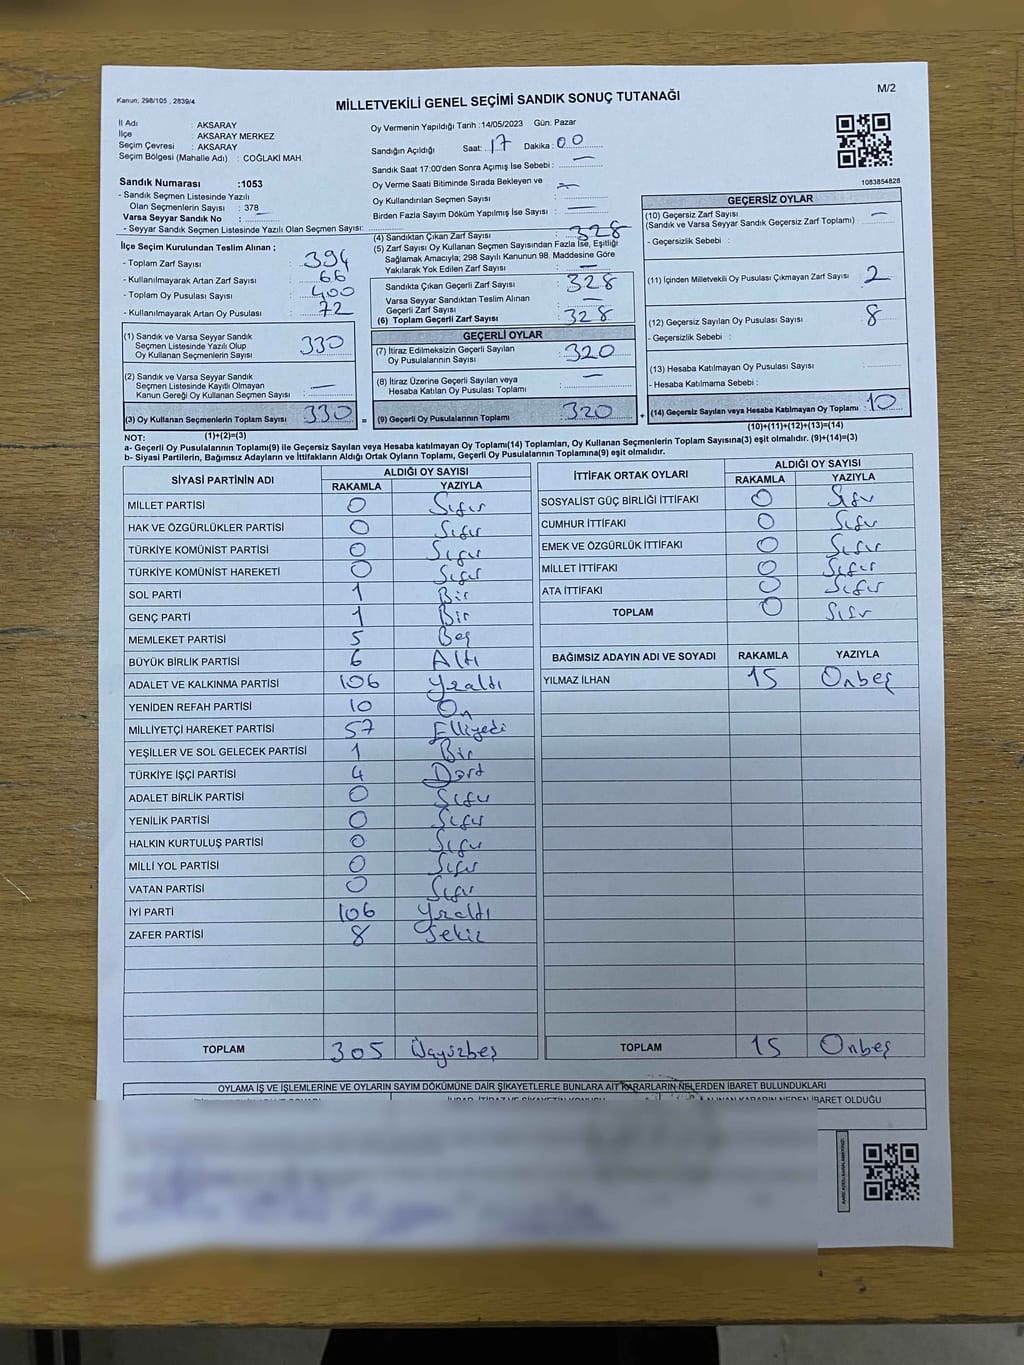 Kanun; 298/105 , 2839/4
MİLLETVEKİLİ GENEL SEÇİMİ SANDIK SONUÇ TUTANAĞI
M/2
İl Adı : AKSARAY
İlçe : AKSARAY MERKEZ
Seçim Çevresi : AKSARAY
Seçim Bölgesi (Mahalle Adı) : COĞLAKİ MAH.
Oy Vermenin Yapıldığı Tarih :14/05/2023 Gün: Pazar
Sandığın Açıldığı Saat: 17 Dakika: 00
Sandık Saat 17:00'den Sonra Açımış İse Sebebi : —
Oy Verme Saati Bitiminde Sırada Bekleyen ve
Oy Kullandırılan Seçmen Sayısı : —
Birden Fazla Sayım Döküm Yapılmış İse Sayısı : —
1083854828
Sandık Numarası :1053
- Sandık Seçmen Listesinde Yazılı
Olan Seçmenlerin Sayısı : 378
Varsa Seyyar Sandık No : —
- Seyyar Sandık Seçmen Listesinde Yazılı Olan Seçmen Sayısı:
İlçe Seçim Kurulundan Teslim Alınan ;
- Toplam Zarf Sayısı : 394
- Kullanılmayarak Artan Zarf Sayısı : 66
- Toplam Oy Pusulası Sayısı : 400
- Kullanılmayarak Artan Oy Pusulası : 72
(1) Sandık ve Varsa Seyyar Sandık
Seçmen Listesinde Yazılı Olup
Oy Kullanan Seçmenlerin Sayısı : 330
(2) Sandık ve Varsa Seyyar Sandık
Seçmen Listesinde Kayıtlı Olmayan
Kanun Gereği Oy Kullanan Seçmen Sayısı : —
(3) Oy Kullanan Seçmenlerin Toplam Sayısı : 330
(1)+(2)=(3)
(4) Sandıktan Çıkan Zarf Sayısı : 328
(5) Zarf Sayısı Oy Kullanan Seçmen Sayısından Fazla İse, Eşitliği
Sağlamak Amacıyla; 298 Sayılı Kanunun 98. Maddesine Göre
Yakılarak Yok Edilen Zarf Sayısı : —
Sandıkta Çıkan Geçerli Zarf Sayısı : 328
Varsa Seyyar Sandıktan Teslim Alınan
Geçerli Zarf Sayısı : —
(6) Toplam Geçerli Zarf Sayısı : 328
GEÇERLİ OYLAR
(7) İtiraz Edilmeksizin Geçerli Sayılan
Oy Pusulalarının Sayısı : 320
(8) İtiraz Üzerine Geçerli Sayılan veya
Hesaba Katılan Oy Pusulası Toplamı : —
= (9) Geçerli Oy Pusulalarının Toplamı : 320
GEÇERSİZ OYLAR
(10) Geçersiz Zarf Sayısı : —
(Sandık ve Varsa Seyyar Sandık Geçersiz Zarf Toplamı)
- Geçersizlik Sebebi :
(11) İçinden Milletvekili Oy Pusulası Çıkmayan Zarf Sayısı : 2
(12) Geçersiz Sayılan Oy Pusulası Sayısı : 8
- Geçersizlik Sebebi :
(13) Hesaba Katılmayan Oy Pusulası Sayısı :
- Hesaba Katılmama Sebebi :
+ (14) Geçersiz Sayılan veya Hesaba Katılmayan Oy Toplamı : 10
(10)+(11)+(12)+(13)=(14)
NOT:
a- Geçerli Oy Pusulalarının Toplamı(9) ile Geçersiz Sayılan veya Hesaba katılmayan Oy Toplamı(14) Toplamları, Oy Kullanan Seçmenlerin Toplam Sayısına(3) eşit olmalıdır. (9)+(14)=(3)
b- Siyasi Partilerin, Bağımsız Adayların ve İttifakların Aldığı Ortak Oyların Toplamı, Geçerli Oy Pusulalarının Toplamına(9) eşit olmalıdır.
SİYASİ PARTİNİN ADI ALDIĞI OY SAYISI
RAKAMLA YAZIYLA
MİLLET PARTİSİ 0 Sıfır
HAK VE ÖZGÜRLÜKLER PARTİSİ 0 Sıfır
TÜRKİYE KOMÜNİST PARTİSİ 0 Sıfır
TÜRKİYE KOMÜNİST HAREKETİ 0 Sıfır
SOL PARTİ 1 Bir
GENÇ PARTİ 1 Bir
MEMLEKET PARTİSİ 5 Beş
BÜYÜK BİRLİK PARTİSİ 6 Altı
ADALET VE KALKINMA PARTİSİ 106 Yüzaltı
YENİDEN REFAH PARTİSİ 10 On
MİLLİYETÇİ HAREKET PARTİSİ 57 Elliyedi
YEŞİLLER VE SOL GELECEK PARTİSİ 1 Bir
TÜRKİYE İŞÇİ PARTİSİ 4 Dört
ADALET BİRLİK PARTİSİ 0 Sıfır
YENİLİK PARTİSİ 0 Sıfır
HALKIN KURTULUŞ PARTİSİ 0 Sıfır
MİLLİ YOL PARTİSİ 0 Sıfır
VATAN PARTİSİ 0 Sıfır
İYİ PARTİ 106 Yüzaltı
ZAFER PARTİSİ 8 Sekiz
TOPLAM 305 Üçyüzbeş
İTTİFAK ORTAK OYLARI ALDIĞI OY SAYISI
RAKAMLA YAZIYLA
SOSYALİST GÜÇ BİRLİĞİ İTTİFAKI 0 Sıfır
CUMHUR İTTİFAKI 0 Sıfır
EMEK VE ÖZGÜRLÜK İTTİFAKI 0 Sıfır
MİLLET İTTİFAKI 0 Sıfır
ATA İTTİFAKI 0 Sıfır
TOPLAM 0 Sıfır
BAĞIMSIZ ADAYIN ADI VE SOYADI RAKAMLA YAZIYLA
YILMAZ İLHAN 15 Onbeş
TOPLAM 15 Onbeş
OYLAMA İŞ VE İŞLEMLERİNE VE OYLARIN SAYIM DÖKÜMÜNE DAİR ŞİKAYETLERLE BUNLARA AİT KARARLARIN NELERDEN İBARET BULUNDUKLARI
KARARIN NEDEN İBARET OLDUĞU